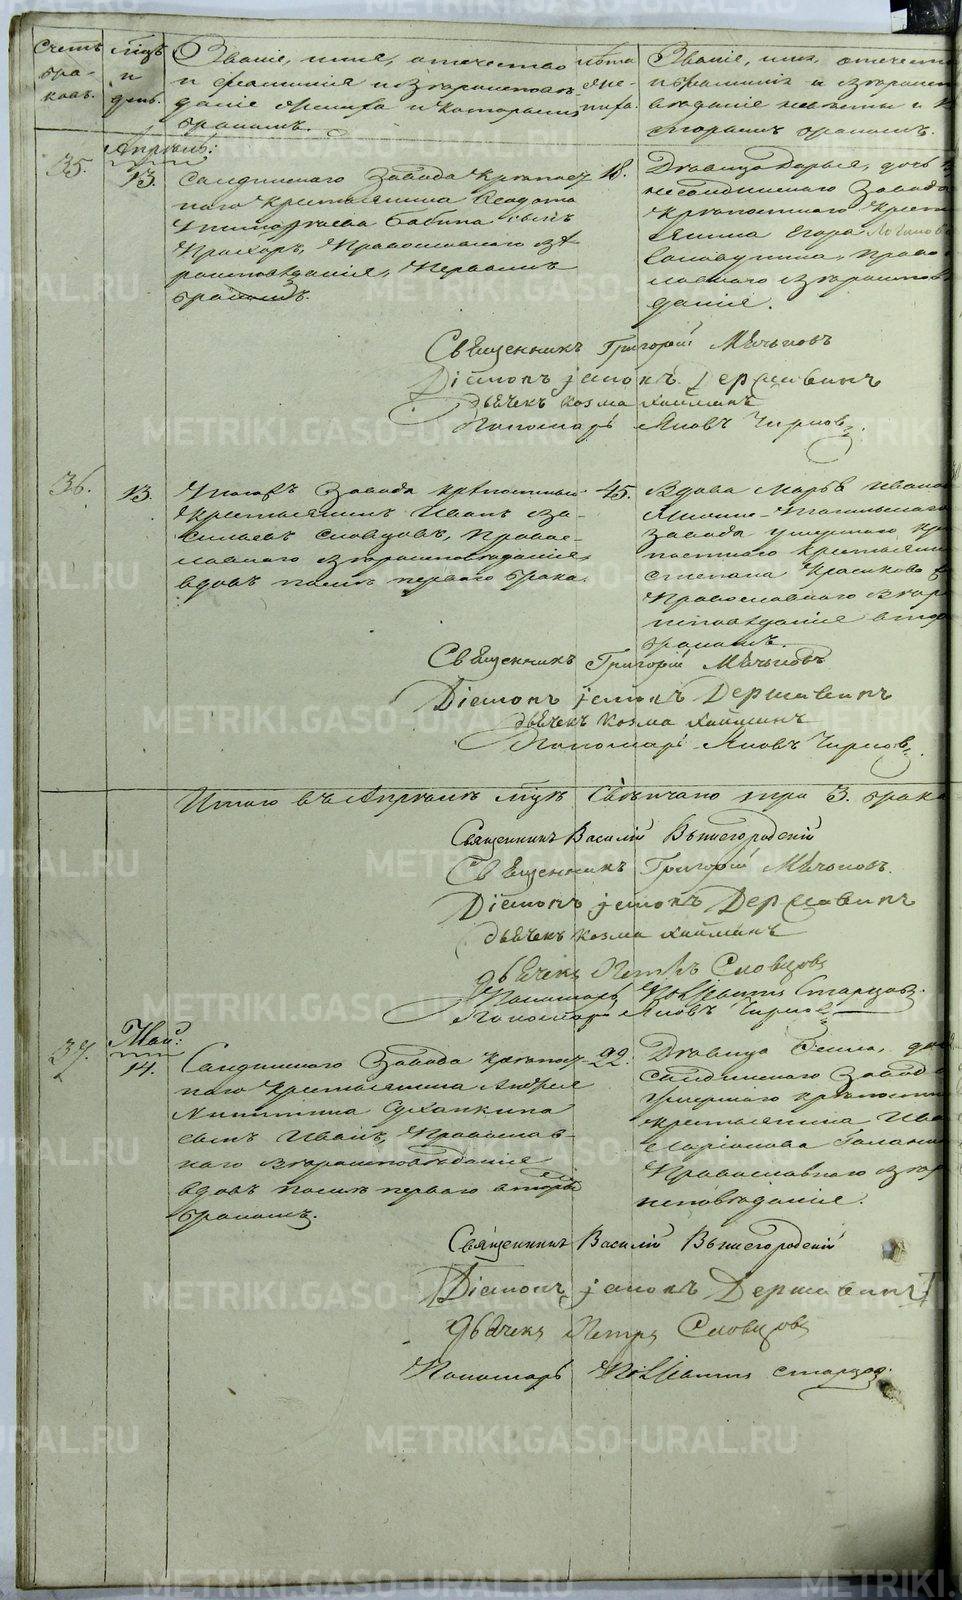 Счетъ
бра-
ковъ.
Мцъ
и
день.
Званіе, имя, отечество
и фамилія и вѣроисповѣ-
даніе жениха и которымъ
бракомъ.
Лѣта
же-
ниха.
Званіе, имя, отечест
и фамилія и вѣроиспо
вѣданіе невѣсты и к
оторымъ бракомъ.
Апрѣль:
35.
13.
Салдинскаго Завода крѣпост-
наго крестьянина Ѳедота
Тимофѣева Бабина сынъ
Прохоръ, Православнаго вѣ-
роисповѣданія, первымъ
бракомъ.
18.
Дѣвица Дарья, дочь
Салдинскаго Завода
крѣпостнаго кресть
янина Егора Логинов
Православнаго вѣроисповѣ
данія.
Священникъ Григорій Мѣчьковъ
Діаконъ Іаковъ Державинъ
дьячекъ Козма Хайминъ
Пономарь Яковъ Чирковъ.
36.
13.
Завода крѣпостный
крестьянинъ Иванъ Ва-
сильевъ Словцовъ, Право-
славнаго вѣроисповѣданія,
вдовъ послѣ перваго брака.
45.
Вдова Марья Иванов
Нижне-Тагильскаго
завода умершаго крѣ
постнаго крестьянин
Степана
Православнаго вѣро
исповѣданія втор
бракомъ.
Священникъ Григорій Мѣчьковъ
Діаконъ Іаковъ Державинъ
дьячекъ Козма Хайминъ
Пономарь Яковъ Чирковъ.
Итого въ Апрѣлѣ мцѣ Свѣнчано три 3. брака
Священникъ Василій Вышегородскій
Священникъ Григорій Мѣчьковъ.
Діаконъ Іаковъ Державинъ
дьячекъ Козма Хайминъ
дьячекъ Петръ Словцовъ
Пономарь Старцовъ.
Пономарь Яковъ Чирковъ
Май:
37.
14.
Салдинскаго Завода крѣпост-
наго крестьянина Андрея
Никитина Суханкина
сынъ Иванъ, Православ-
наго вѣроисповѣданія
вдовъ послѣ перваго вторы
бракомъ.
22.
Дѣвица дочь
Салдинскаго Завода
умершаго крѣпостн
крестьянина Ива
Ларіонова
Православнаго вѣро
исповѣданія.
Священникъ Василій Вышегородскій
Діаконъ Іаковъ Державинъ
дьячекъ Петръ Словцовъ
Пономарь Старцовъ.
METRIKI.GASO-URAL.RU